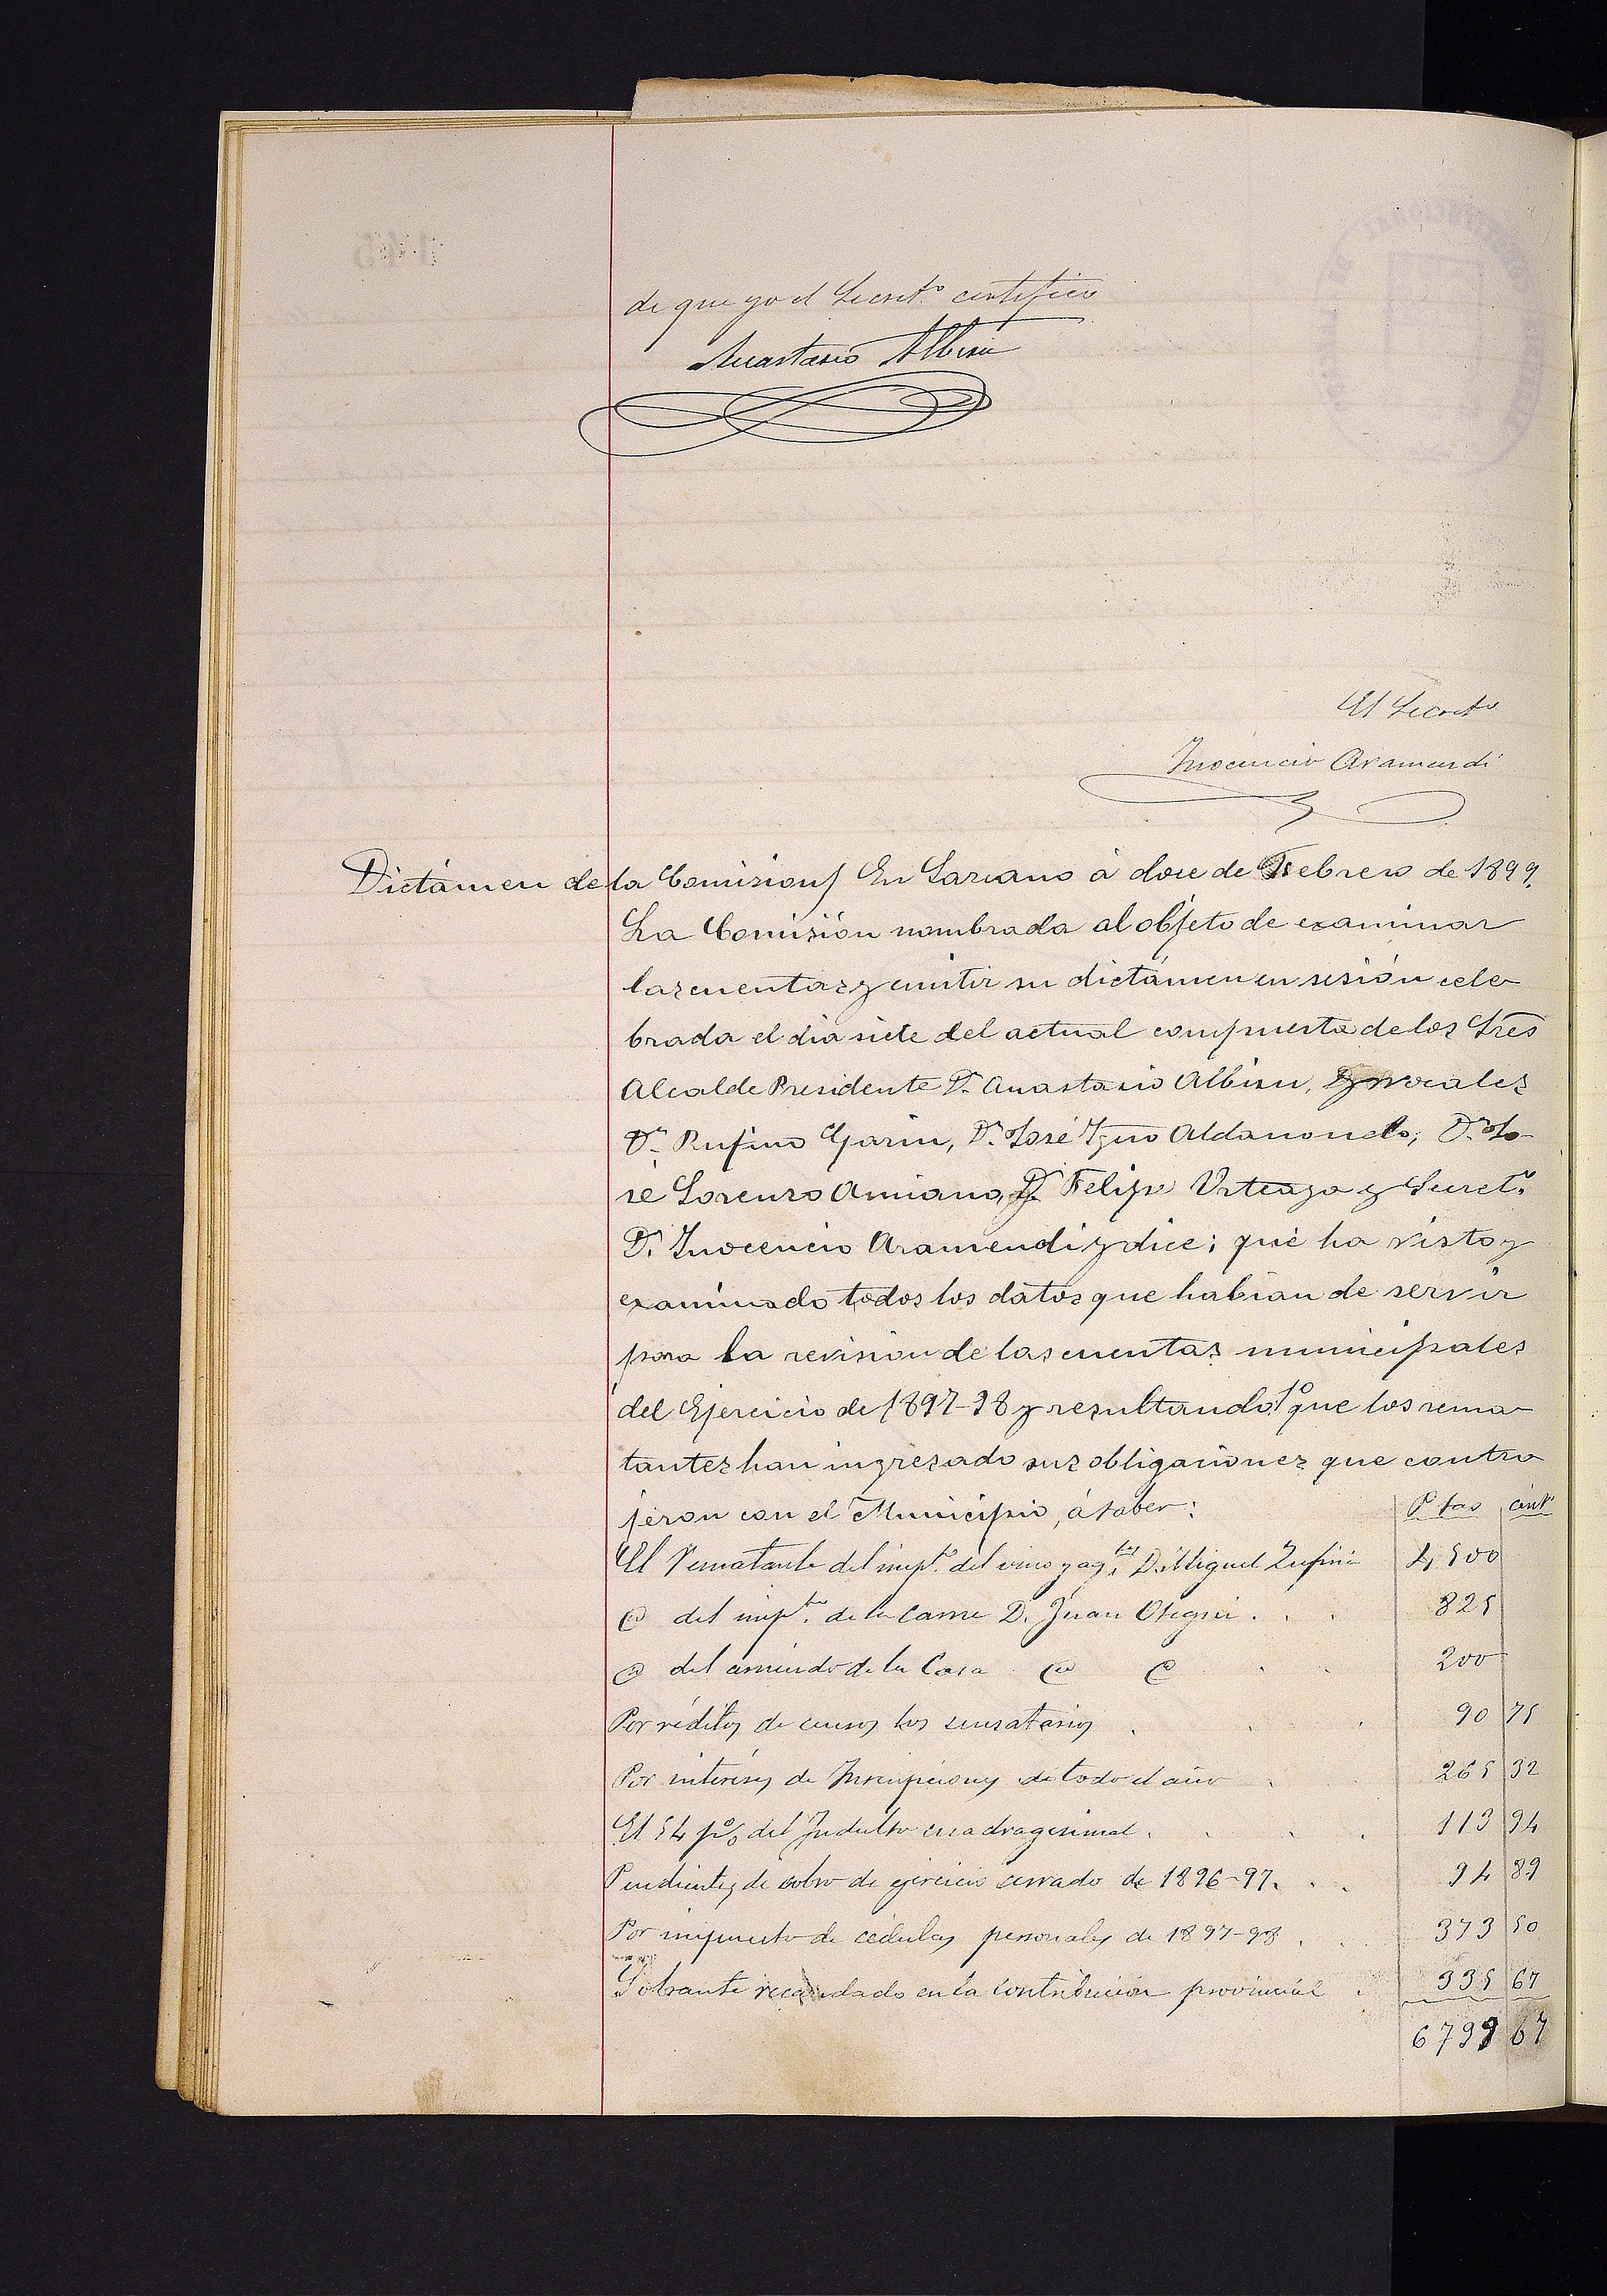 de que yo el Secret.º certifico
Anastasio Albisu
El Secret.º
Inocencio Aramendi
Dictámen de la Comision/ En Larcano á doce de Febrero de 1899.
La Comisión nombrada al objeto de examinar
las cuentas y emitir su dictámen en sesión cele
brada el dia siete del actual compuesta de los Sres
Alcalde Presidente D.n Anastasio Albisu, y vocales
D.n Rufino Garin, D.n José Ign.o Aldanondo; D.n Jo-
sé Lorenzo Amiano, D.n Felipe Urteaga y Secret.º
D.n Inocencio Aramendi y dice; que ha visto y
examinado todos los datos que habian de servir
para la revision de las cuentas municipales
del Ejercicio de 1897-98 y resultando 1º que los rema-
tantes han ingresado sus obligaciones que contra
jeron con el Municipio, á saber: Ptas cént
El Rematante del imp.to del vino y ag.tes D. Miguel 4,500
@ del imp.to de la Carne D. Juan Otegui . . . 825
@ del arriendo de la Casa @ @ . . 200
Por réditos de censos los censatarios . . . 90 75
Por intereses de Inscripciones de todo el año . 265 32
El 54 p% del Indulto cuadragesimal . . . . 113 94
Pendientes de cobro de ejercicio cerrado de 1896-97. . . 94 89
Por impuesto de cédulas personales de 1897-98 . . 373 50
Sobrante recaudado en la Contribucion provincial . 335 67
6799 67